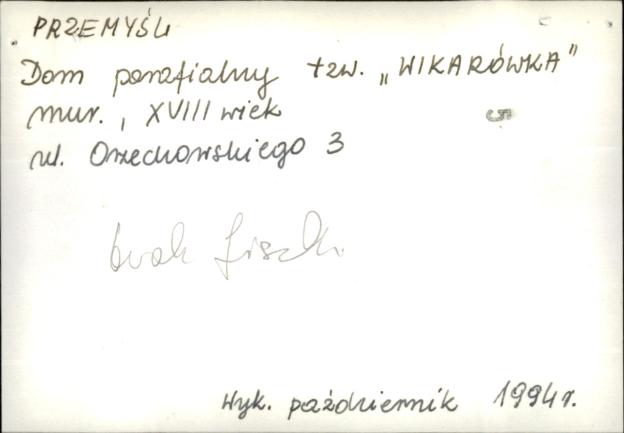 PRZEMYŚL
Dom parafialny tzw. „WIKARÓWKA"
mur., XVIII wiek
ul. Orzechowskiego 3
brak
Wyk. październik 1994 r.